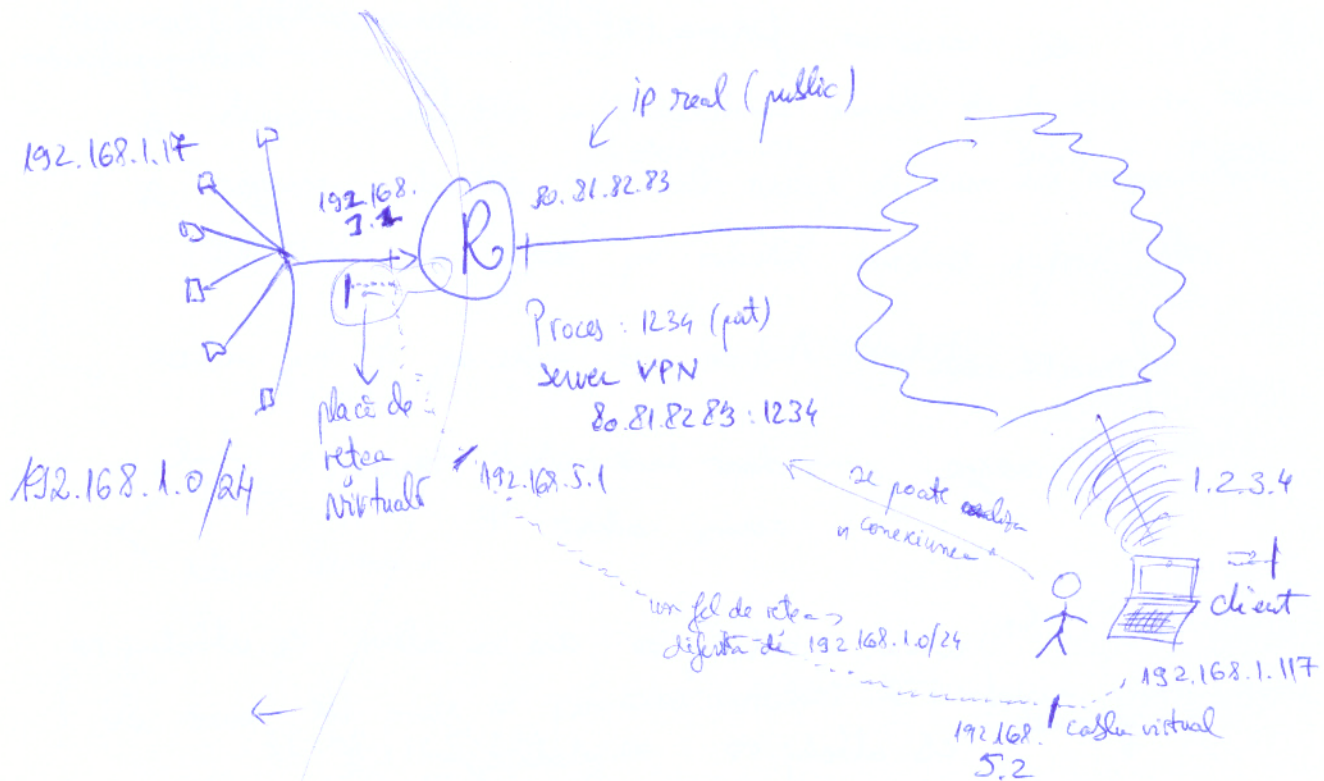 ip real (public)
192.168.1.17
192.168.
1.1
R
80.81.82.83
Proces : 1234 (port)
server VPN
80.81.82.83 : 1234
placă de
rețea
virtuală
192.168.1.0/24
192.168.5.1
se poate
conexiunea
1.2.3.4
client
un fel de rețea
diferită de 192.168.1.0/24
192.168.1.117
cablu virtual
192.168.
5.2